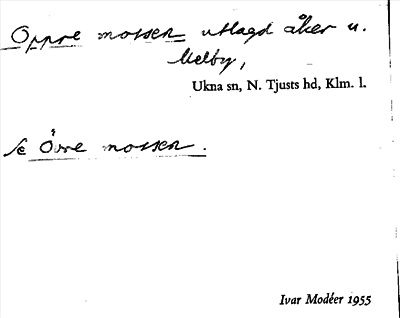 Oppre mossen utlagd åker u.
Melby,
Ukna sn, N. Tjusts hd, Klm. l.
se Övre mossen.
Ivar Modéer 1955